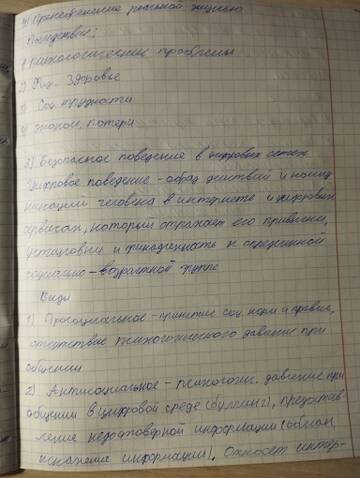 4) Пренебрежение реальной жизнью
Последствия:
1) психологические проблемы
2) Физ. здоровье
3) Соц. трудности
4) эконом. потери
3) Безопасное поведение в цифровых сетях
Цифровое поведение - образ действий и комму
никации человека в интернете и цифровых
сервисах, который отражает его привычки,
установки и принадлежность к определенной
социально-возрастной группе
Виды
1) Просоциальное - принятие соц. норм и правил,
отсутствие психологического давления при
общении
2) Антисоциальное - психологич. давление при
общении в цифровой среде (буллинг), предостав-
ление недостоверной информации (обман,
искажение информации). Относят интер-